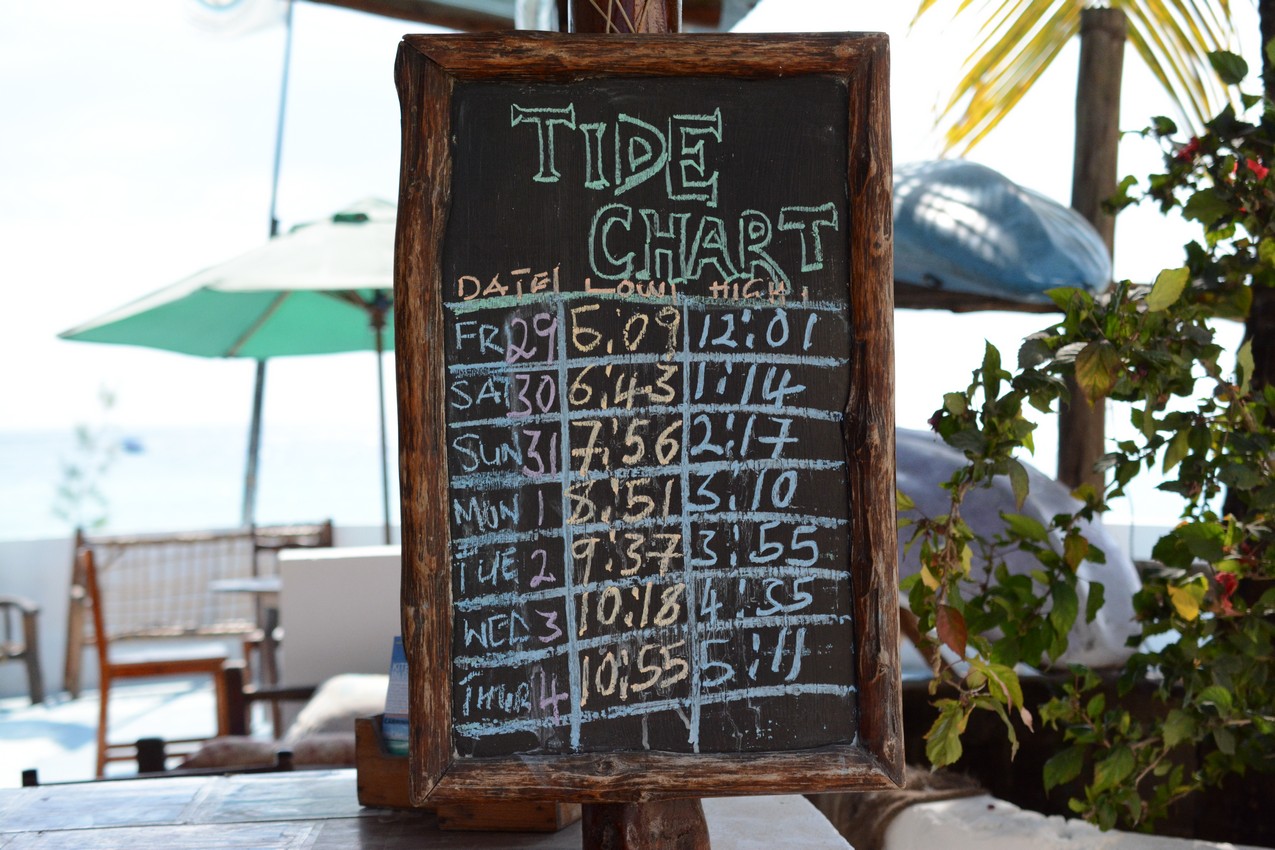 TIDE
CHART
DATE LOW HIGH
FRI 29 5:09 12:01
SAT 30 6:43 1:14
SUN 31 7:56 2:17
MON 1 8:51 3:10
TUE 2 9:37 3:55
WED 3 10:18 4:35
THUR 4 10:55 5:11